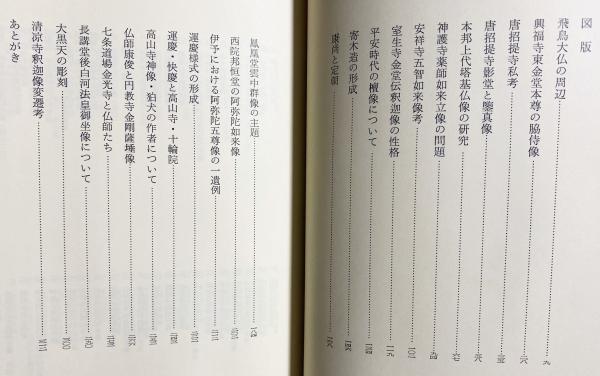 図版
飛鳥大仏の周辺
興福寺東金堂本尊の脇侍像
唐招提寺私考
唐招提寺影堂と鑒真像
本邦上代塔基仏像の研究
神護寺薬師如来立像の問題
安祥寺五智如来像考
室生寺金堂伝釈迦像の性格
平安時代の檀像について
寄木造の形成
康尚と定朝
鳳凰堂雲中群像の主題
西院邦恒堂の阿弥陀如来像
伊予における阿弥陀五尊像の一遺例
運慶様式の形成
運慶・快慶と高山寺・十輪院
高山寺神像・狛犬の作者について
仏師康俊と円教寺金剛薩埵像
七条道場金光寺と仏師たち
長講堂後白河法皇御坐像について
大黒天の彫刻
清涼寺釈迦像変遷考
あとがき